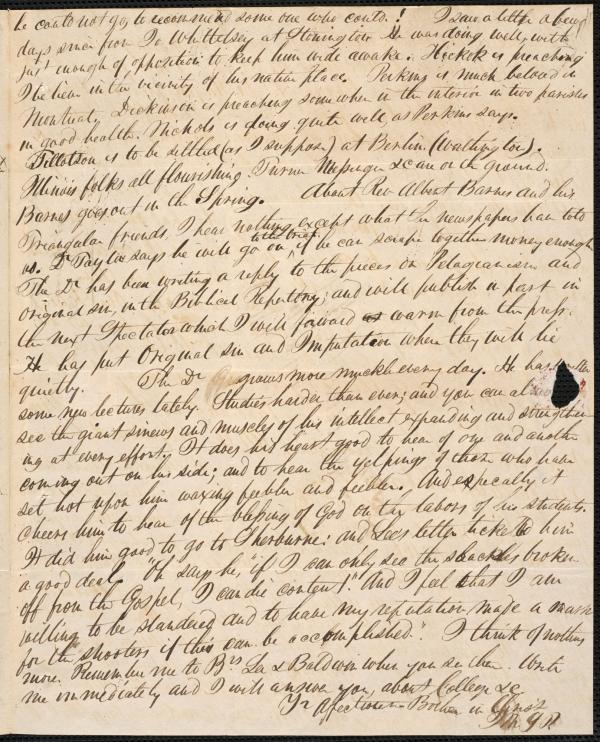 he could not go, to recommend some one who could.! I saw a letter a few
days since from Jo Whittelsey at Stonington he was doing well, with
just enough of opposition to keep him wide awake. Hickok is preaching
I believe in the vicinity of his native place. Perkins is much beloved in
Montreal, Dickinson is preaching somewhere in the interior in two parishes
in good health. Nichols is doing quite well, as Perkins says.
Tillotson is to be settled (as I suppose) at Berlin. (Worthington).
Illinois folks all flourishing. Turner Messenger &c are on the ground.
Barnes goes out in the Spring. About Rev Albert Barnes and his
Triangular friends, I hear nothing, except what the newspapers have told
us. Dr Taylor says he will go on to the trial, if he can scrape together money enough
The Dr has been writing a reply to the pieces on Pelagianism and
original sin, in the Biblical Repertory, and will publish a part in
the next Spectator which I will forward warm from the press.
He has put Original sin and Imputation where they will lie
quietly. The Dr grows more muckle every day. He has written
some new lectures lately. Studies harder than ever; and you can
see the giant sinews and muscles of his intellect expanding and strengthen
ing at every effort. It does his heart good to hear of one and another
coming out on his side; and to hear the yelpings of those who have
set hot upon him waxing feebler and feebler. And especially it
cheers him to hear of the blessing of God on the labors of his students.
It did him good to go to Sherburne; and Lee's letter tickled him
a good deal. "Oh says he, "if I can only see the shackles broken
off from the Gospel, I can die content." "And I feel that I am
willing to be slandered and to have my reputation made a mark
for the shooters if this can be accomplished." I think of nothing
more. Remember me to Brs Lee & Baldwin when you see them. Write
me immediately and I will answer you, about College &c
Yr Affectionate Brother in Christ